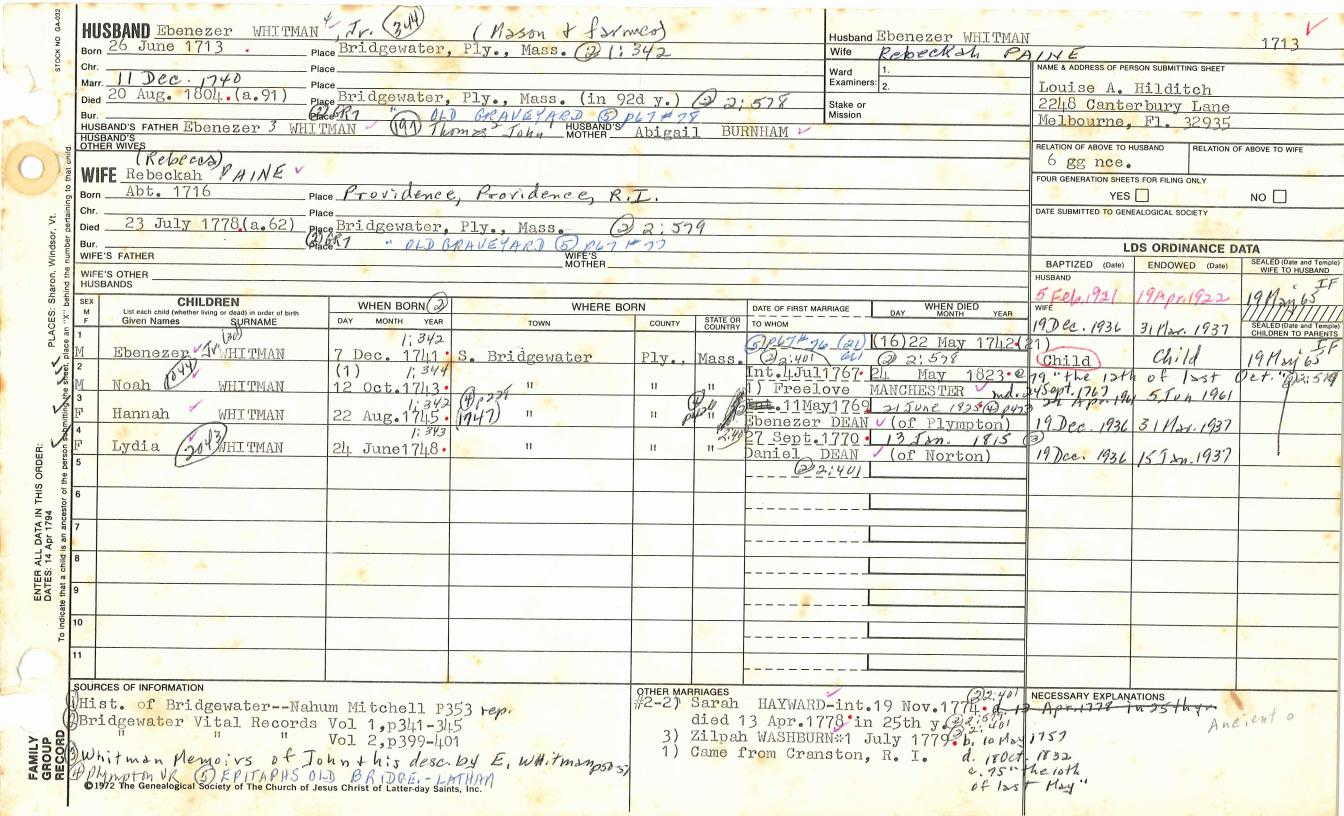 STOCK NO GA-032
HUSBAND Ebenezer WHITMAN 4, Jr. (344) (Mason & farmer)
Born 26 June 1713. Place Bridgewater, Ply., Mass. (2) 1:342
Chr. Place
Marr. 11 Dec. 1740 Place
Died 20 Aug. 1804.(a.91) Place Bridgewater, Ply., Mass. (in 92d y.) (2) 2:578
Bur. Place " OLD GRAVEYARD (5) p67 #78
HUSBAND'S FATHER Ebenezer 3 WHITMAN (197) Thomas2 John1 HUSBAND'S MOTHER Abigail BURNHAM
HUSBAND'S OTHER WIVES
(Rebecca)
WIFE Rebeckah PAINE
Born Abt. 1716 Place Providence, Providence, R.I.
Chr. Place
Died 23 July 1778.(a.62) Place Bridgewater, Ply., Mass. (2) 2:579
Bur. Place " OLD GRAVEYARD (5) p67 #77
WIFE'S FATHER WIFE'S MOTHER
WIFE'S OTHER HUSBANDS
Husband Ebenezer WHITMAN 1713
Wife Rebeckah PAINE
Ward Examiners: 1.
2.
Stake or Mission
NAME & ADDRESS OF PERSON SUBMITTING SHEET
Louise A. Hilditch
2248 Canterbury Lane
Melbourne, Fl. 32935
RELATION OF ABOVE TO HUSBAND RELATION OF ABOVE TO WIFE
6 gg nce.
FOUR GENERATION SHEETS FOR FILING ONLY
YES NO
DATE SUBMITTED TO GENEALOGICAL SOCIETY
LDS ORDINANCE DATA
BAPTIZED (Date) ENDOWED (Date) SEALED (Date and Temple) WIFE TO HUSBAND
HUSBAND IF
5 Feb. 1921 19 Apr. 1922 19 May 65
WIFE
19 Dec. 1936 31 Mar. 1937 SEALED (Date and Temple) CHILDREN TO PARENTS
SEX M F CHILDREN WHEN BORN (2) WHERE BORN DATE OF FIRST MARRIAGE WHEN DIED
List each child (whether living or dead) in order of birth
Given Names SURNAME DAY MONTH YEAR TOWN COUNTY STATE OR COUNTRY TO WHOM DAY MONTH YEAR
1 1:342 (5) p67 #76 (21) (16)22 May 1742.(21) IF
M Ebenezer Jr. WHITMAN 7 Dec. 1741. S. Bridgewater Ply., Mass. (2) 2:401 (2) 2:578 Child Child 19 May 65
2 (1) 1:344 Int.4Jul1767. 24 May 1823. 79 "the 12th of last Oct."
M Noah (1044) WHITMAN 12 Oct.1743. " " " 1) Freelove MANCHESTER md. 24 Sept. 1767 5 Jun 1961
3 1:342 (4) p228 11May1769 21 June 1825 (4) p473
F Hannah WHITMAN 22 Aug.1745. (1947) " " " Ebenezer DEAN (of Plympton) 19 Dec. 1936 31 Mar. 1937
4 1:343 27 Sept.1770. 13 Jan. 1815
F Lydia (2043) WHITMAN 24 June1748. " " " Daniel DEAN (of Norton) 19 Dec. 1936 15 Jan. 1937
5 (2) 2:401
6
7
8
9
10
11
SOURCES OF INFORMATION
(1) Hist. of Bridgewater--Nahum Mitchell P353 rep.
(2) Bridgewater Vital Records Vol 1,p341-345
" " " Vol 2,p399-401
(3) Whitman Memoirs of John & his desc. by E. Whitman
(4) Plympton VR (5) EPITAPHS OLD BRIDGE.-LATHAM
©1972 The Genealogical Society of The Church of Jesus Christ of Latter-day Saints, Inc.
OTHER MARRIAGES
#2-2) Sarah HAYWARD-int.19 Nov.1774. (2) 2:401
died 13 Apr.1778.in 25th y.
3) Zilpah WASHBURN 1 July 1779. b. 10 May 1757
1) Came from Cranston, R. I. d. 18 Oct. 1832
a. 75 "the 10th
of last May"
NECESSARY EXPLANATIONS
d. 13 Apr. 1778 in 25th yr.
Ancient o
ENTER ALL DATA IN THIS ORDER:
DATES: 14 Apr 1794 PLACES: Sharon, Windsor, Vt.
To indicate that a child is an ancestor of the person submitting the sheet, place an "X" behind the number pertaining to that child.
FAMILY GROUP RECORD